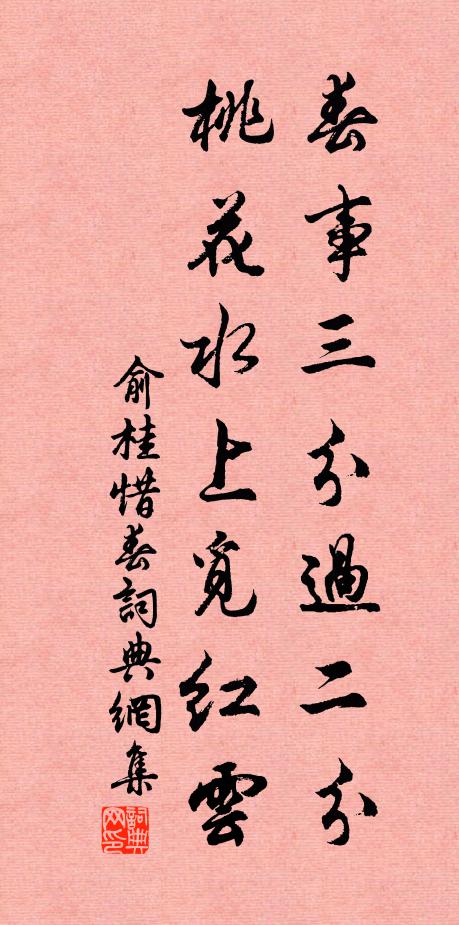 春事三分過二分
桃花水上覓紅雲
俞桂惜春詞典網集
詞典網印